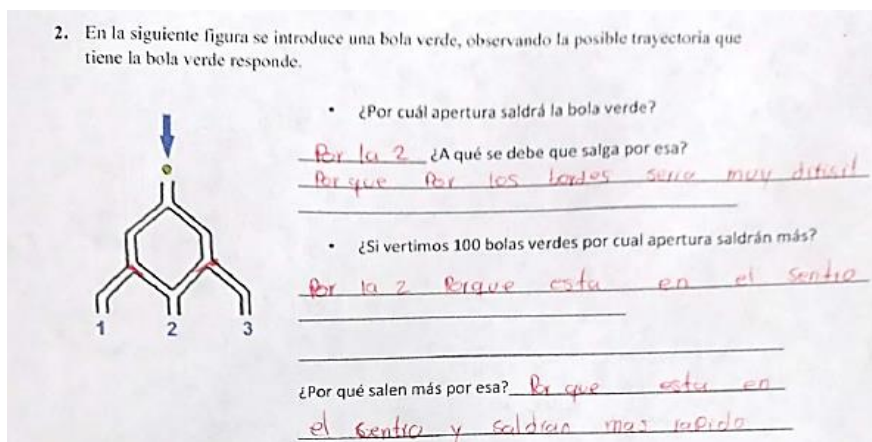 2. En la siguiente figura se introduce una bola verde, observando la posible trayectoria que
tiene la bola verde responde.
• ¿Por cuál apertura saldrá la bola verde?
Por la 2 ¿A qué se debe que salga por esa?
Por que Por los bordes seria muy difisil
• ¿Si vertimos 100 bolas verdes por cual apertura saldrán más?
Por la 2 Porque esta en el sentro
1 2 3
¿Por qué salen más por esa? Por que esta en
el sentro y saldran mas rapido